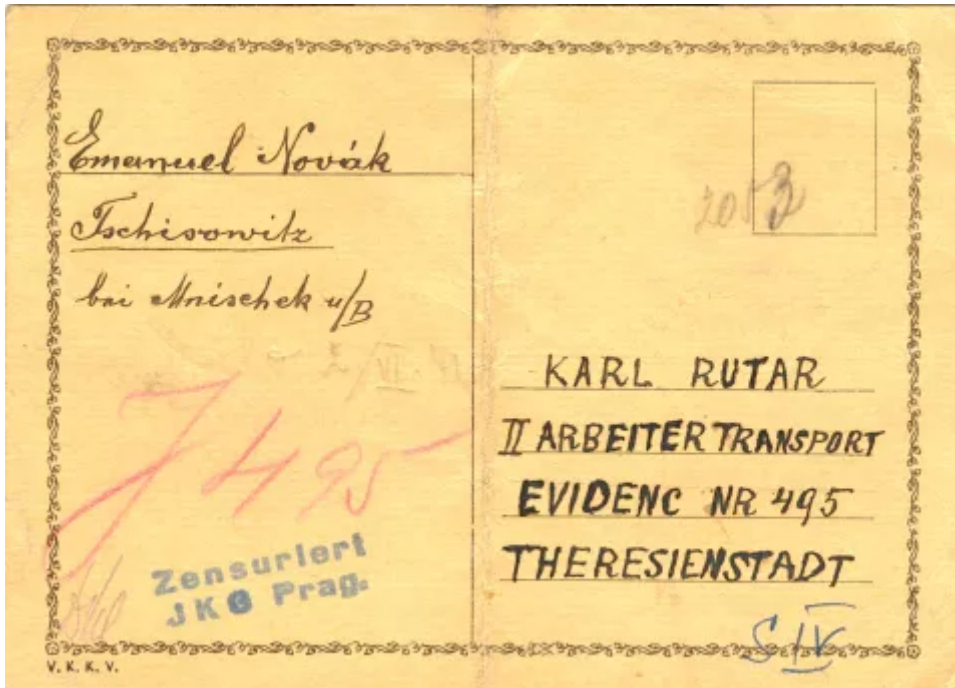 Emanuel Novák
Tschisowitz
bei Mnischek u/B
J 495
Zensuriert
JKG Prag.
V. K. K. V.
2053
KARL RUTAR
II ARBEITERTRANSPORT
EVIDENC NR 495
THERESIENSTADT
S IV